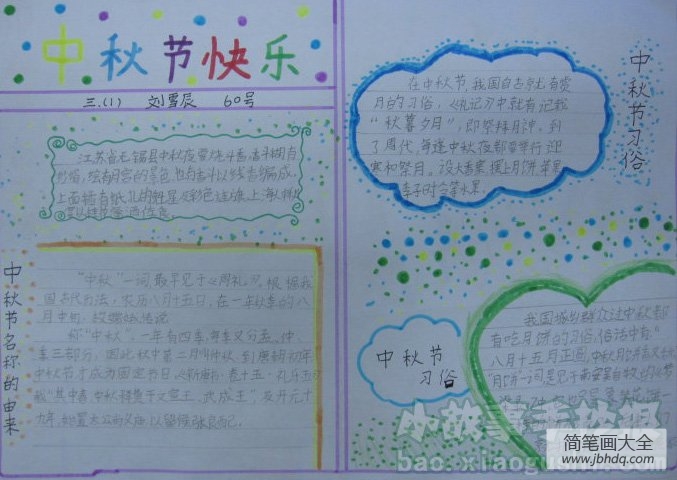 中秋节快乐
三.(1) 刘雪辰 60号
江苏省无锡县中秋夜要烧斗香,香斗四周
纱绢,绘有月宫的景色,也有香斗以线香编成,
上面插有纸扎的魁星及彩色旌旗,上海人
中秋节名称的由来
“中秋”一词,最早见于《周礼》,根据我
国古代历法,农历八月十五日,在一年秋季的八
月中旬,故
称“中秋”。一年有四季,每季又分孟、仲、
季三部分,因此秋中第二月叫仲秋,到唐朝初年
中秋节才成为固定节日。《新唐书·卷十五·礼乐五》
载“其中春、中秋释奠于文宣王、武成王”,及开元十
九年,始置太公尚父庙,以留侯张良配。
中秋节习俗
在中秋节,我国自古就有赏
月的习俗,《礼记》中就有记载
“秋暮夕月”,即祭拜月神。到
了周代,每逢中秋夜都要举行迎
寒和祭月。设大香案,摆上月饼、苹果
李子、时令等水果
中秋节
习俗
我国城乡群众过中秋都
有吃月饼的习俗,俗话中有“
八月十五月正圆,中秋月饼香又甜
“月饼”一词是见于南宋吴自牧的《
小故事手抄报
bao.xiaogushi.com
简笔画大全
www.jbhdq.com